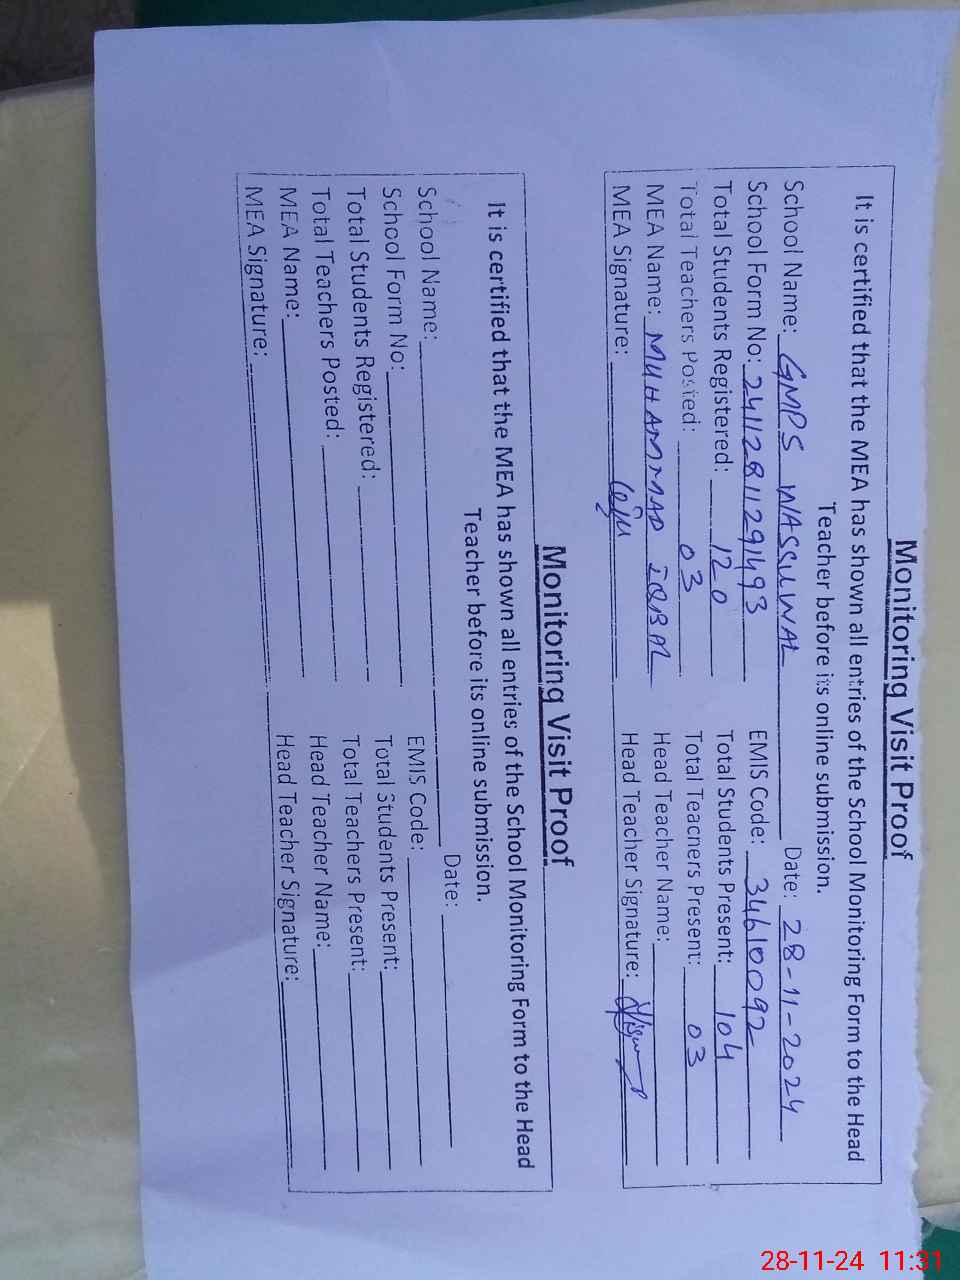 Monitoring Visit Proof
It is certified that the MEA has shown all entries of the School Monitoring Form to the Head
Teacher before its online submission.
School Name: GMPS WASSUWAL Date: 28-11-2024
School Form No: 24112811291493 EMIS Code: 34610092
Total Students Registered: 120 Total Students Present: 104
Total Teachers Posted: 03 Total Teachers Present: 03
MEA Name: MUHAMMAD IQBAL Head Teacher Name:
MEA Signature: Head Teacher Signature:
Monitoring Visit Proof
It is certified that the MEA has shown all entries of the School Monitoring Form to the Head
Teacher before its online submission.
School Name: Date:
School Form No: EMIS Code:
Total Students Registered: Total Students Present:
Total Teachers Posted: Total Teachers Present:
MEA Name: Head Teacher Name:
MEA Signature: Head Teacher Signature:
28-11-24 11:31